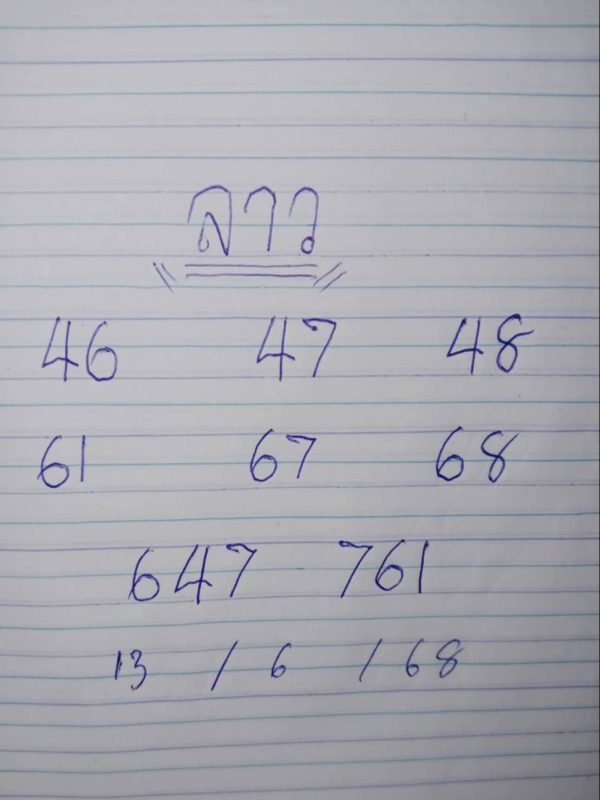 ลาว
46 47 48
61 67 68
647 761
13 / 6 / 68